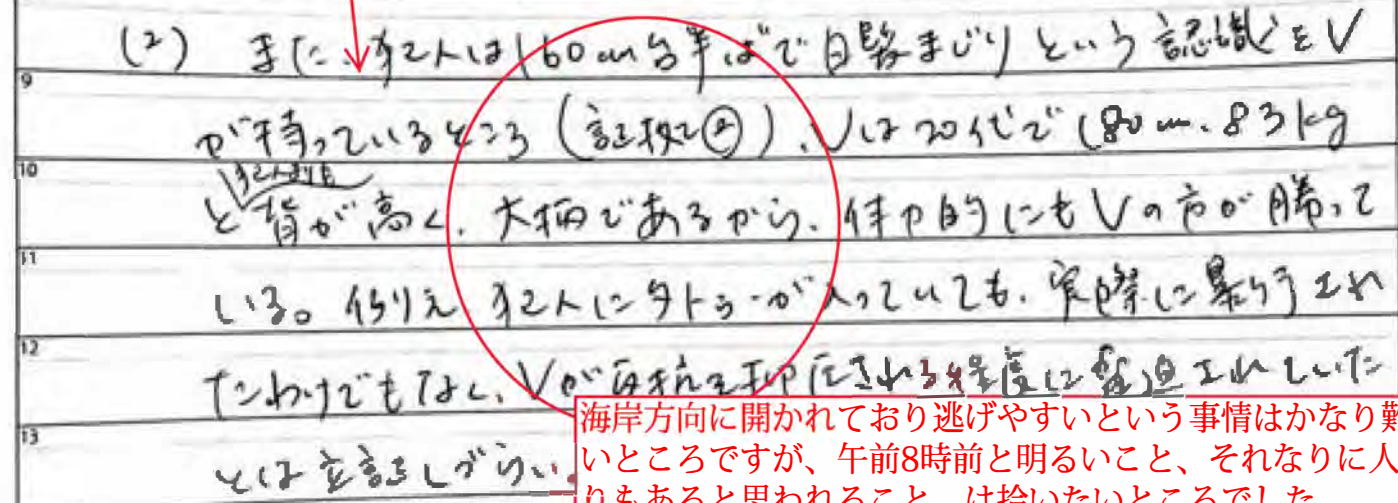 (2) また、犯人は160cm台半ばで白髪まじりという認識をV
9
が持っているところ(証拠2②)、Vは20代で180cm、83kg
10
犯人よりも
と背が高く、大柄であるから、体力的にもVの方が勝って
11
いる。例え犯人にタトゥーが入っていても、実際に暴行され
12
たわけでもなく、Vが反抗を抑圧される程度に脅迫されていた
13
とは立証しづらい。
海岸方向に開かれており逃げやすいという事情はかなり難
いところですが、午前8時前と明るいこと、それなりに人
りもあると思われること、は拾いたいところでした